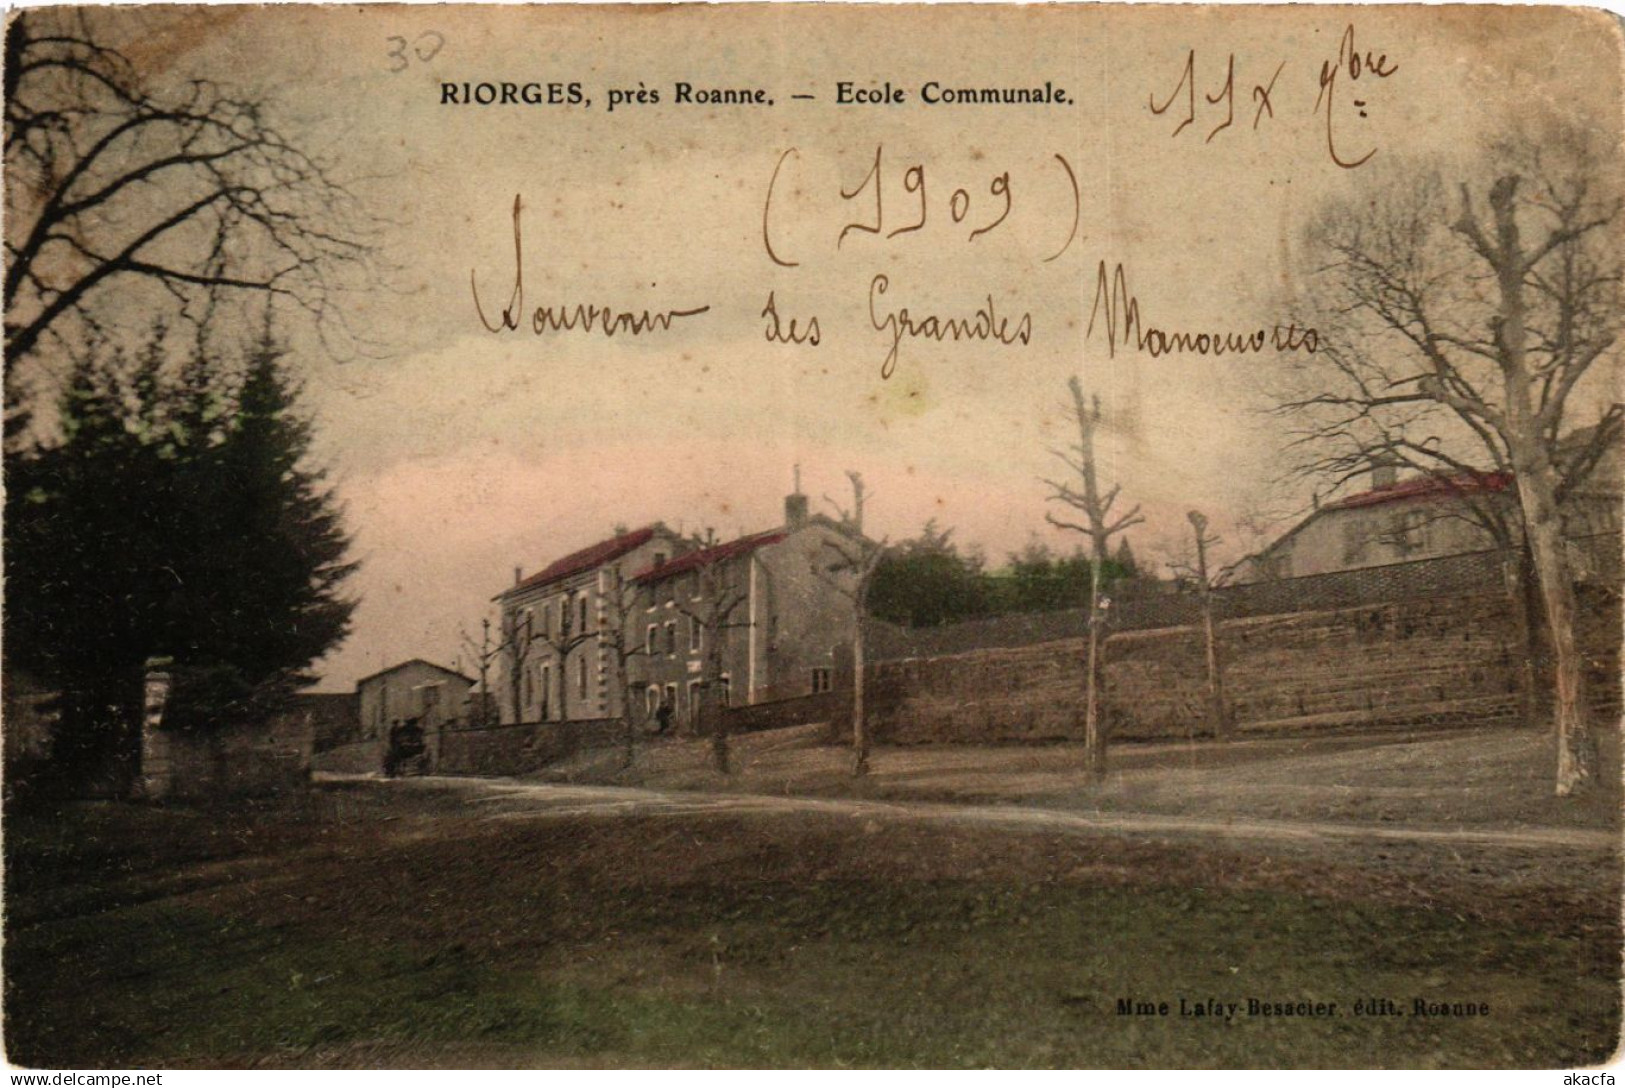 30
RIORGES, près Roanne. — Ecole Communale.
11 x 7bre
(1909)
Souvenir des Grandes Manoeuvres
Mme Lafay-Besacier, édit. Roanne
delcampe.net
akacfa